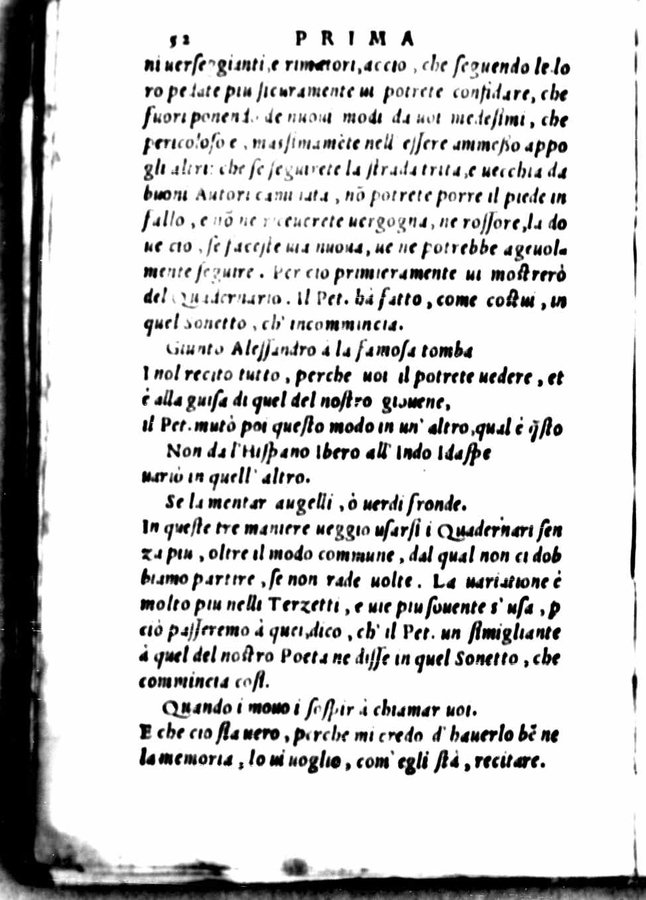 52 PRIMA
ni uerseggianti, e rimatori, accio, che seguendo le lo
ro pedate piu sicuramente ui potrete confidare, che
fuori ponendo de nuoui modi da uoi medesimi, che
pericoloso e, massimamēte nell essere ammesso appo
gli altri: che se seguirete la strada trita, e uecchia da
buoni Autori caminata, nō potrete porre il piede in
fallo, e nō ne riceuerete uergogna, ne rossore, la do
ue cio, se faceste uia nuoua, ue ne potrebbe ageuola
mente seguire. Per cio primieramente ui mostrerò
del Quadernario. Il Pet. hà fatto, come costui, in
quel Sonetto, ch' incommincia.
Giunto Alessandro à la famosa tomba
I nol recito tutto, perche uoi il potrete uedere, et
è alla guisa di quel del nostro giouene,
il Pet. mutò poi questo modo in un' altro, qual è q̃sto
Non da l'Hispano Ibero all' Indo Idaspe
uariò in quell' altro.
Se lamentar augelli, ò uerdi fronde.
In queste tre maniere ueggio usarsi i Quadernari sen
za piu, oltre il modo commune, dal qual non ci dob
biamo partire, se non rade uolte. La uariatione è
molto piu nelli Terzetti, e uie piu souente s' usa, p
ciò passeremo à quei, dico, ch' il Pet. un simigliante
à quel del nostro Poeta ne disse in quel Sonetto, che
commincia così.
Quando i mouo i sospir à chiamar uoi.
E che cio sia uero, perche mi credo d' hauerlo bē ne
la memoria, lo ui uoglio, com' egli stà, recitare.